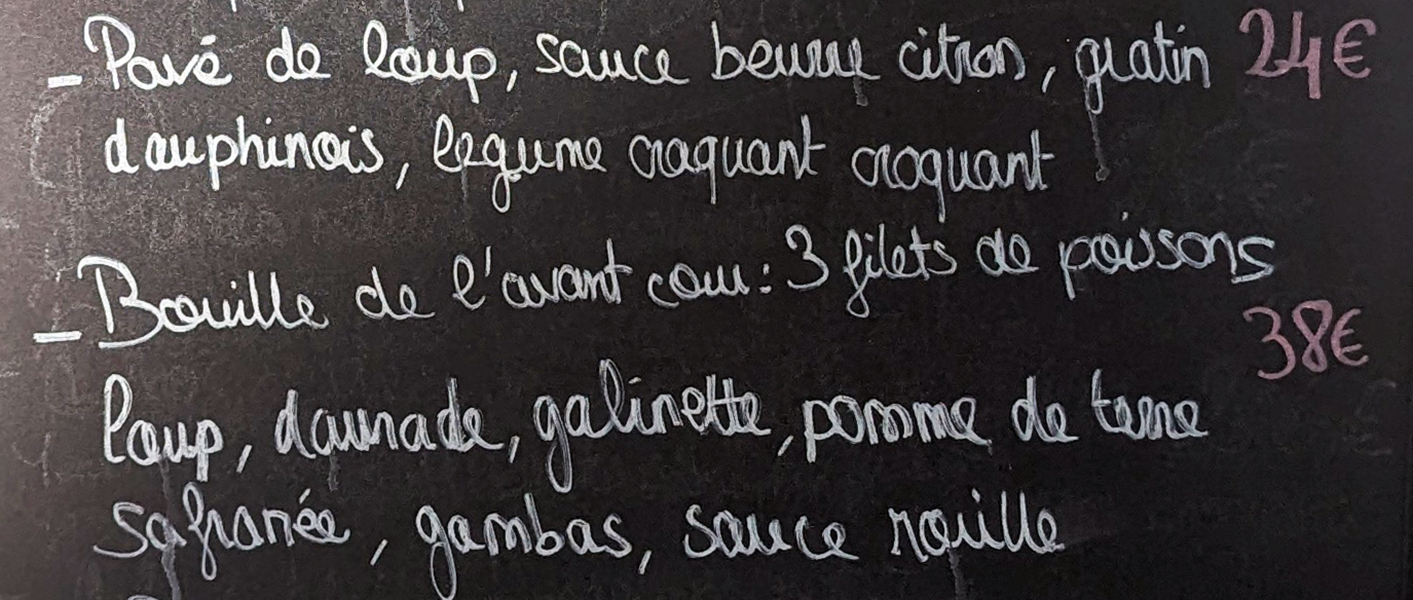 - Pavé de loup, sauce beurre citron, gratin 24€
dauphinois, legume craquant croquant
- Bouille de l'avant cour : 3 filets de poissons
38€
loup, daurade, galinette, pomme de terre
safranée, gambas, sauce rouille